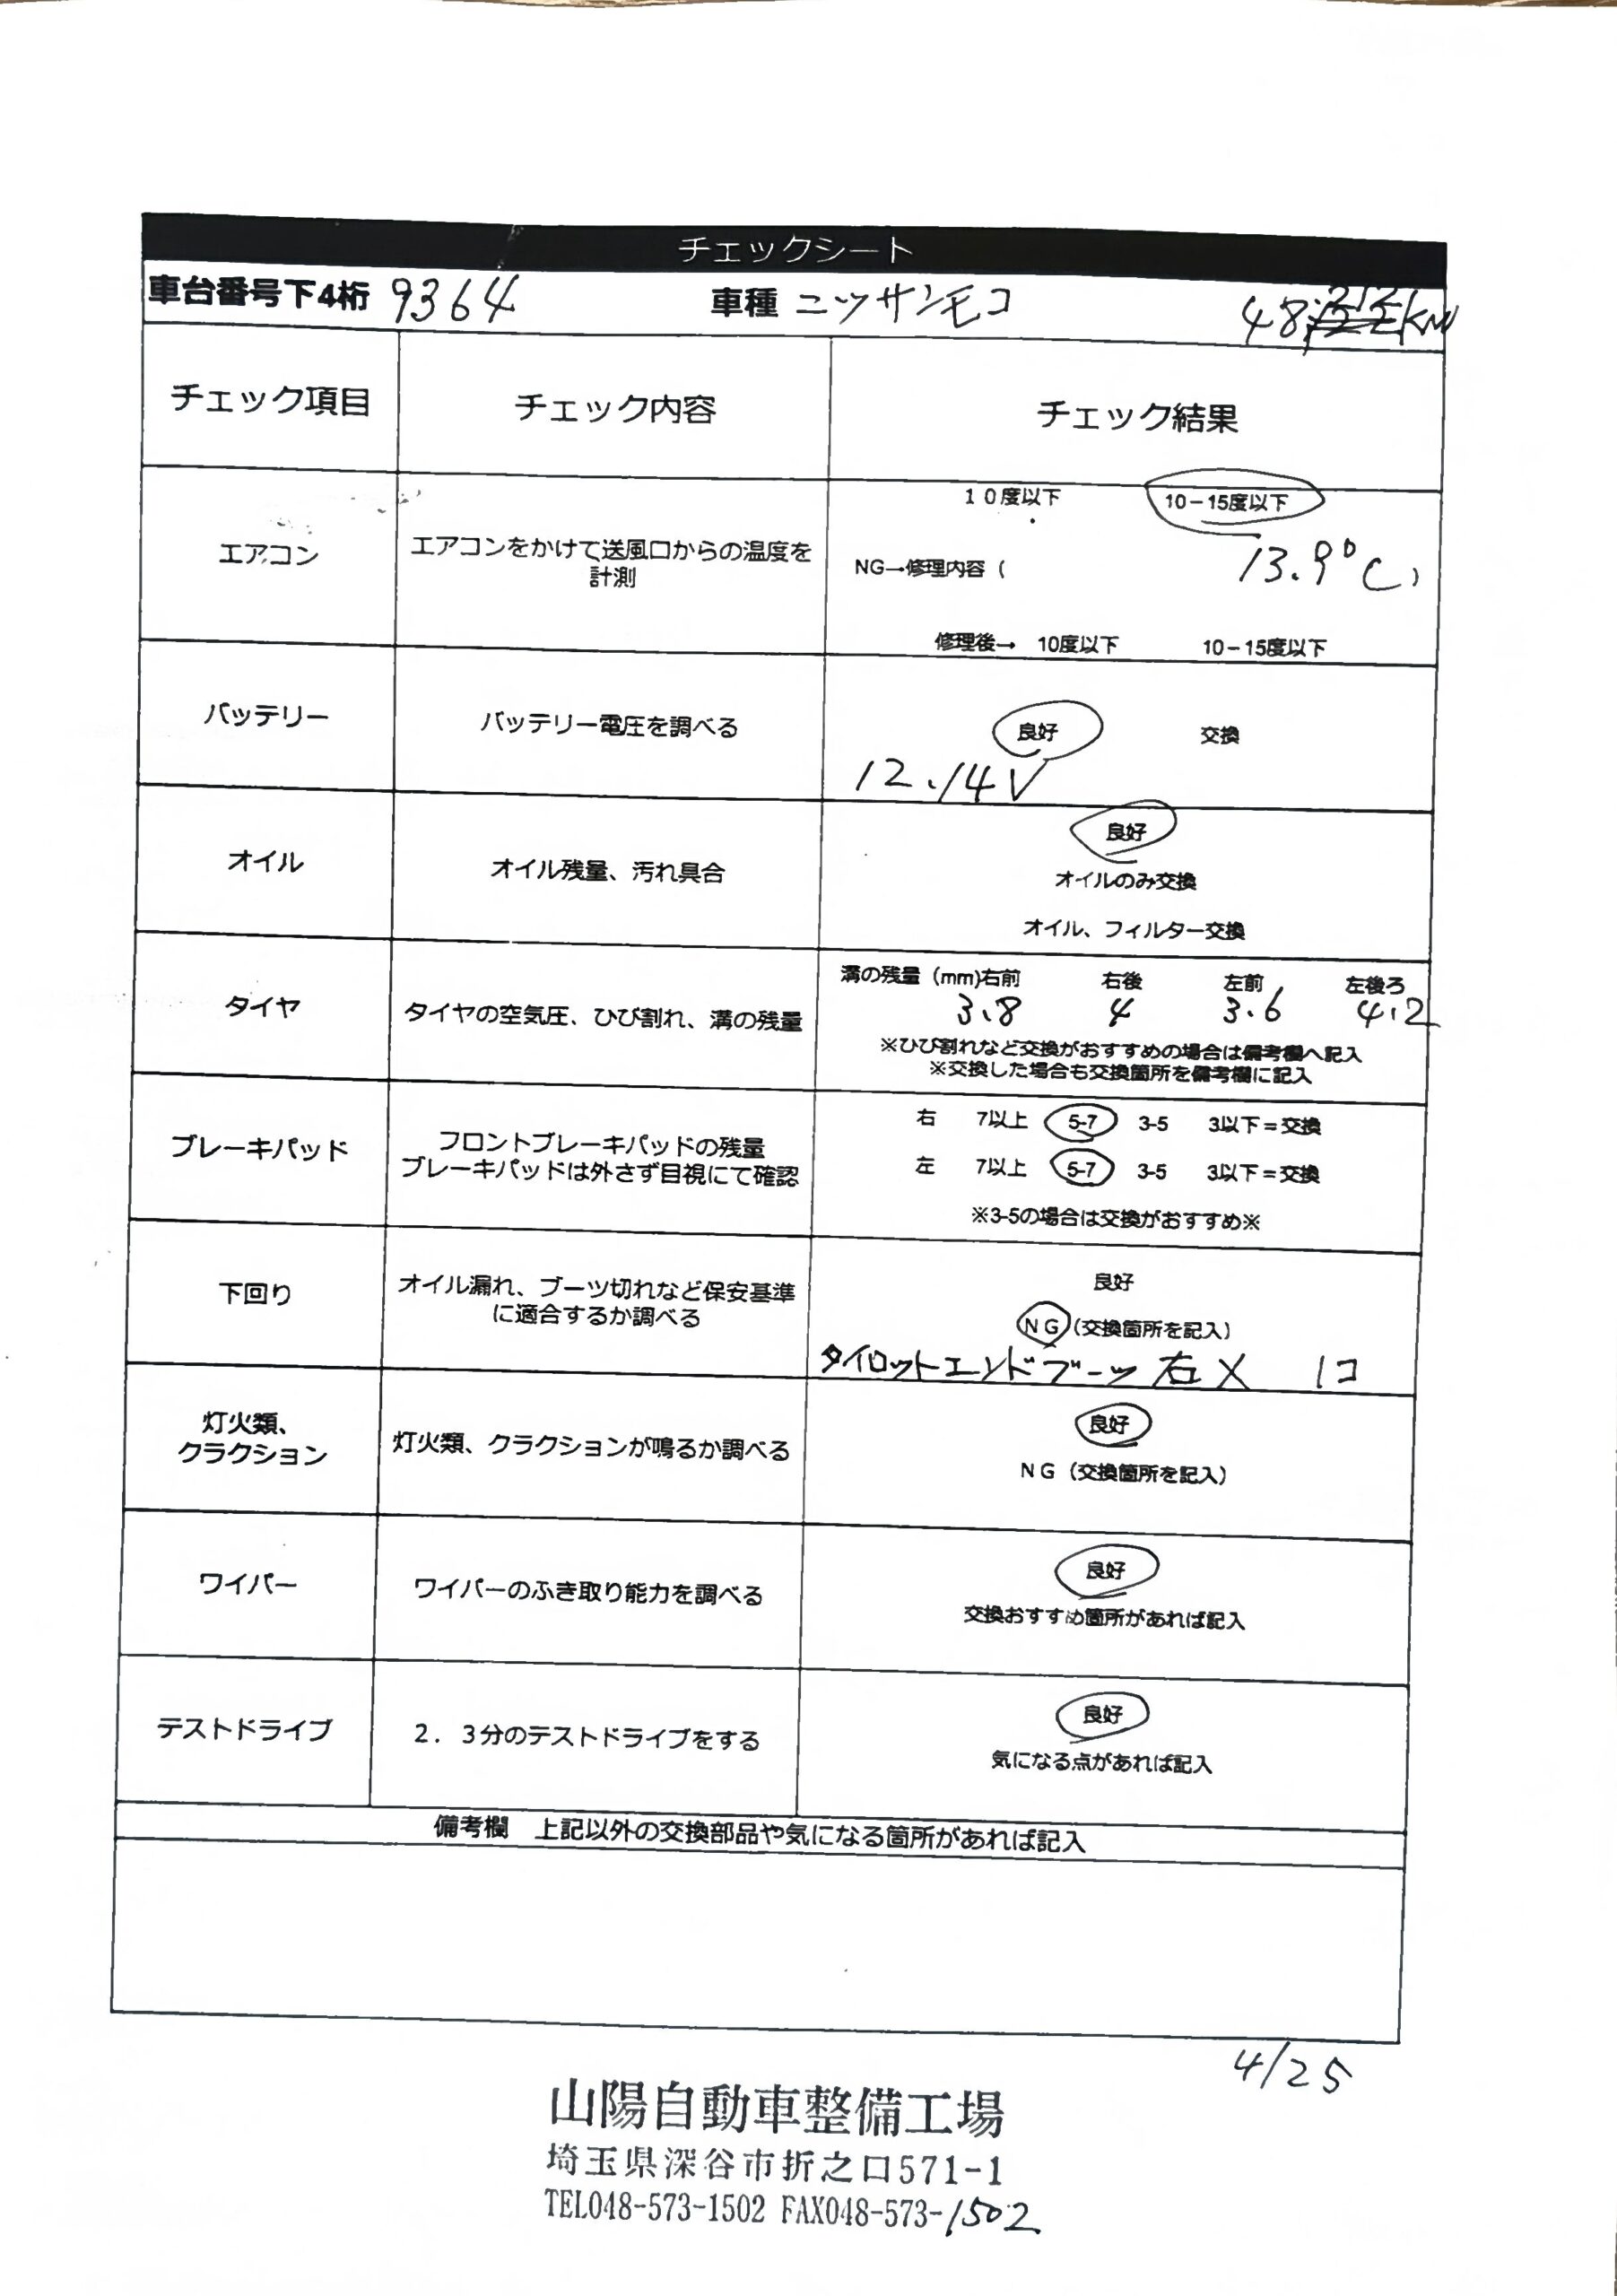 チェックシート
車台番号下4桁 9364 車種 ニッサンモコ 48,212KM
チェック項目 チェック内容 チェック結果
エアコン
エアコンをかけて送風口からの温度を
計測
10度以下 10-15度以下
NG→修理内容( 13.9°C)
修理後→ 10度以下 10-15度以下
バッテリー
バッテリー電圧を調べる
良好 交換
12.14V
オイル
オイル残量、汚れ具合
良好
オイルのみ交換
オイル、フィルター交換
タイヤ
タイヤの空気圧、ひび割れ、溝の残量
溝の残量(mm)右前 右後 左前 左後ろ
3.8 4 3.6 4.2
※ひび割れなど交換がおすすめの場合は備考欄へ記入
※交換した場合も交換箇所を備考欄に記入
ブレーキパッド
フロントブレーキパッドの残量
ブレーキパッドは外さず目視にて確認
右 7以上 5-7 3-5 3以下=交換
左 7以上 5-7 3-5 3以下=交換
※3-5の場合は交換がおすすめ※
下回り
オイル漏れ、ブーツ切れなど保安基準
に適合するか調べる
良好
NG(交換箇所を記入)
タイロットエンドブーツ 右 X 1コ
灯火類、
クラクション
灯火類、クラクションが鳴るか調べる
良好
NG(交換箇所を記入)
ワイパー
ワイパーのふき取り能力を調べる
良好
交換おすすめ箇所があれば記入
テストドライブ
2.3分のテストドライブをする
良好
気になる点があれば記入
備考欄 上記以外の交換部品や気になる箇所があれば記入
4/25
山陽自動車整備工場
埼玉県深谷市折之口571-1
TEL048-573-1502 FAX048-573-1502